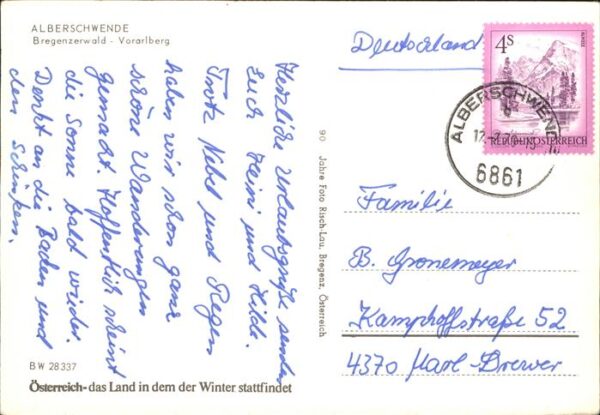 ALBERSCHWENDE
Bregenzerwald - Vorarlberg
Herzliche Urlaubsgrüße senden
Euch Heini und Hilde.
Trotz Nebel und Regen
haben wir schon ganz
schöne Wanderungen
gemacht. Hoffentlich scheint
die Sonne bald wieder.
Denkt an die Baden und
den Schinken.
BW 28337
Österreich-das Land in dem der Winter stattfindet
90 Jahre Foto Risch-Lau, Bregenz, Österreich
Deutschland
4S
REPUBLIK ÖSTERREICH
ALBERSCHWENDE
6861
Familie
B. Gronemeyer
Kamphoffstraße 52
4370 Marl-Brewer